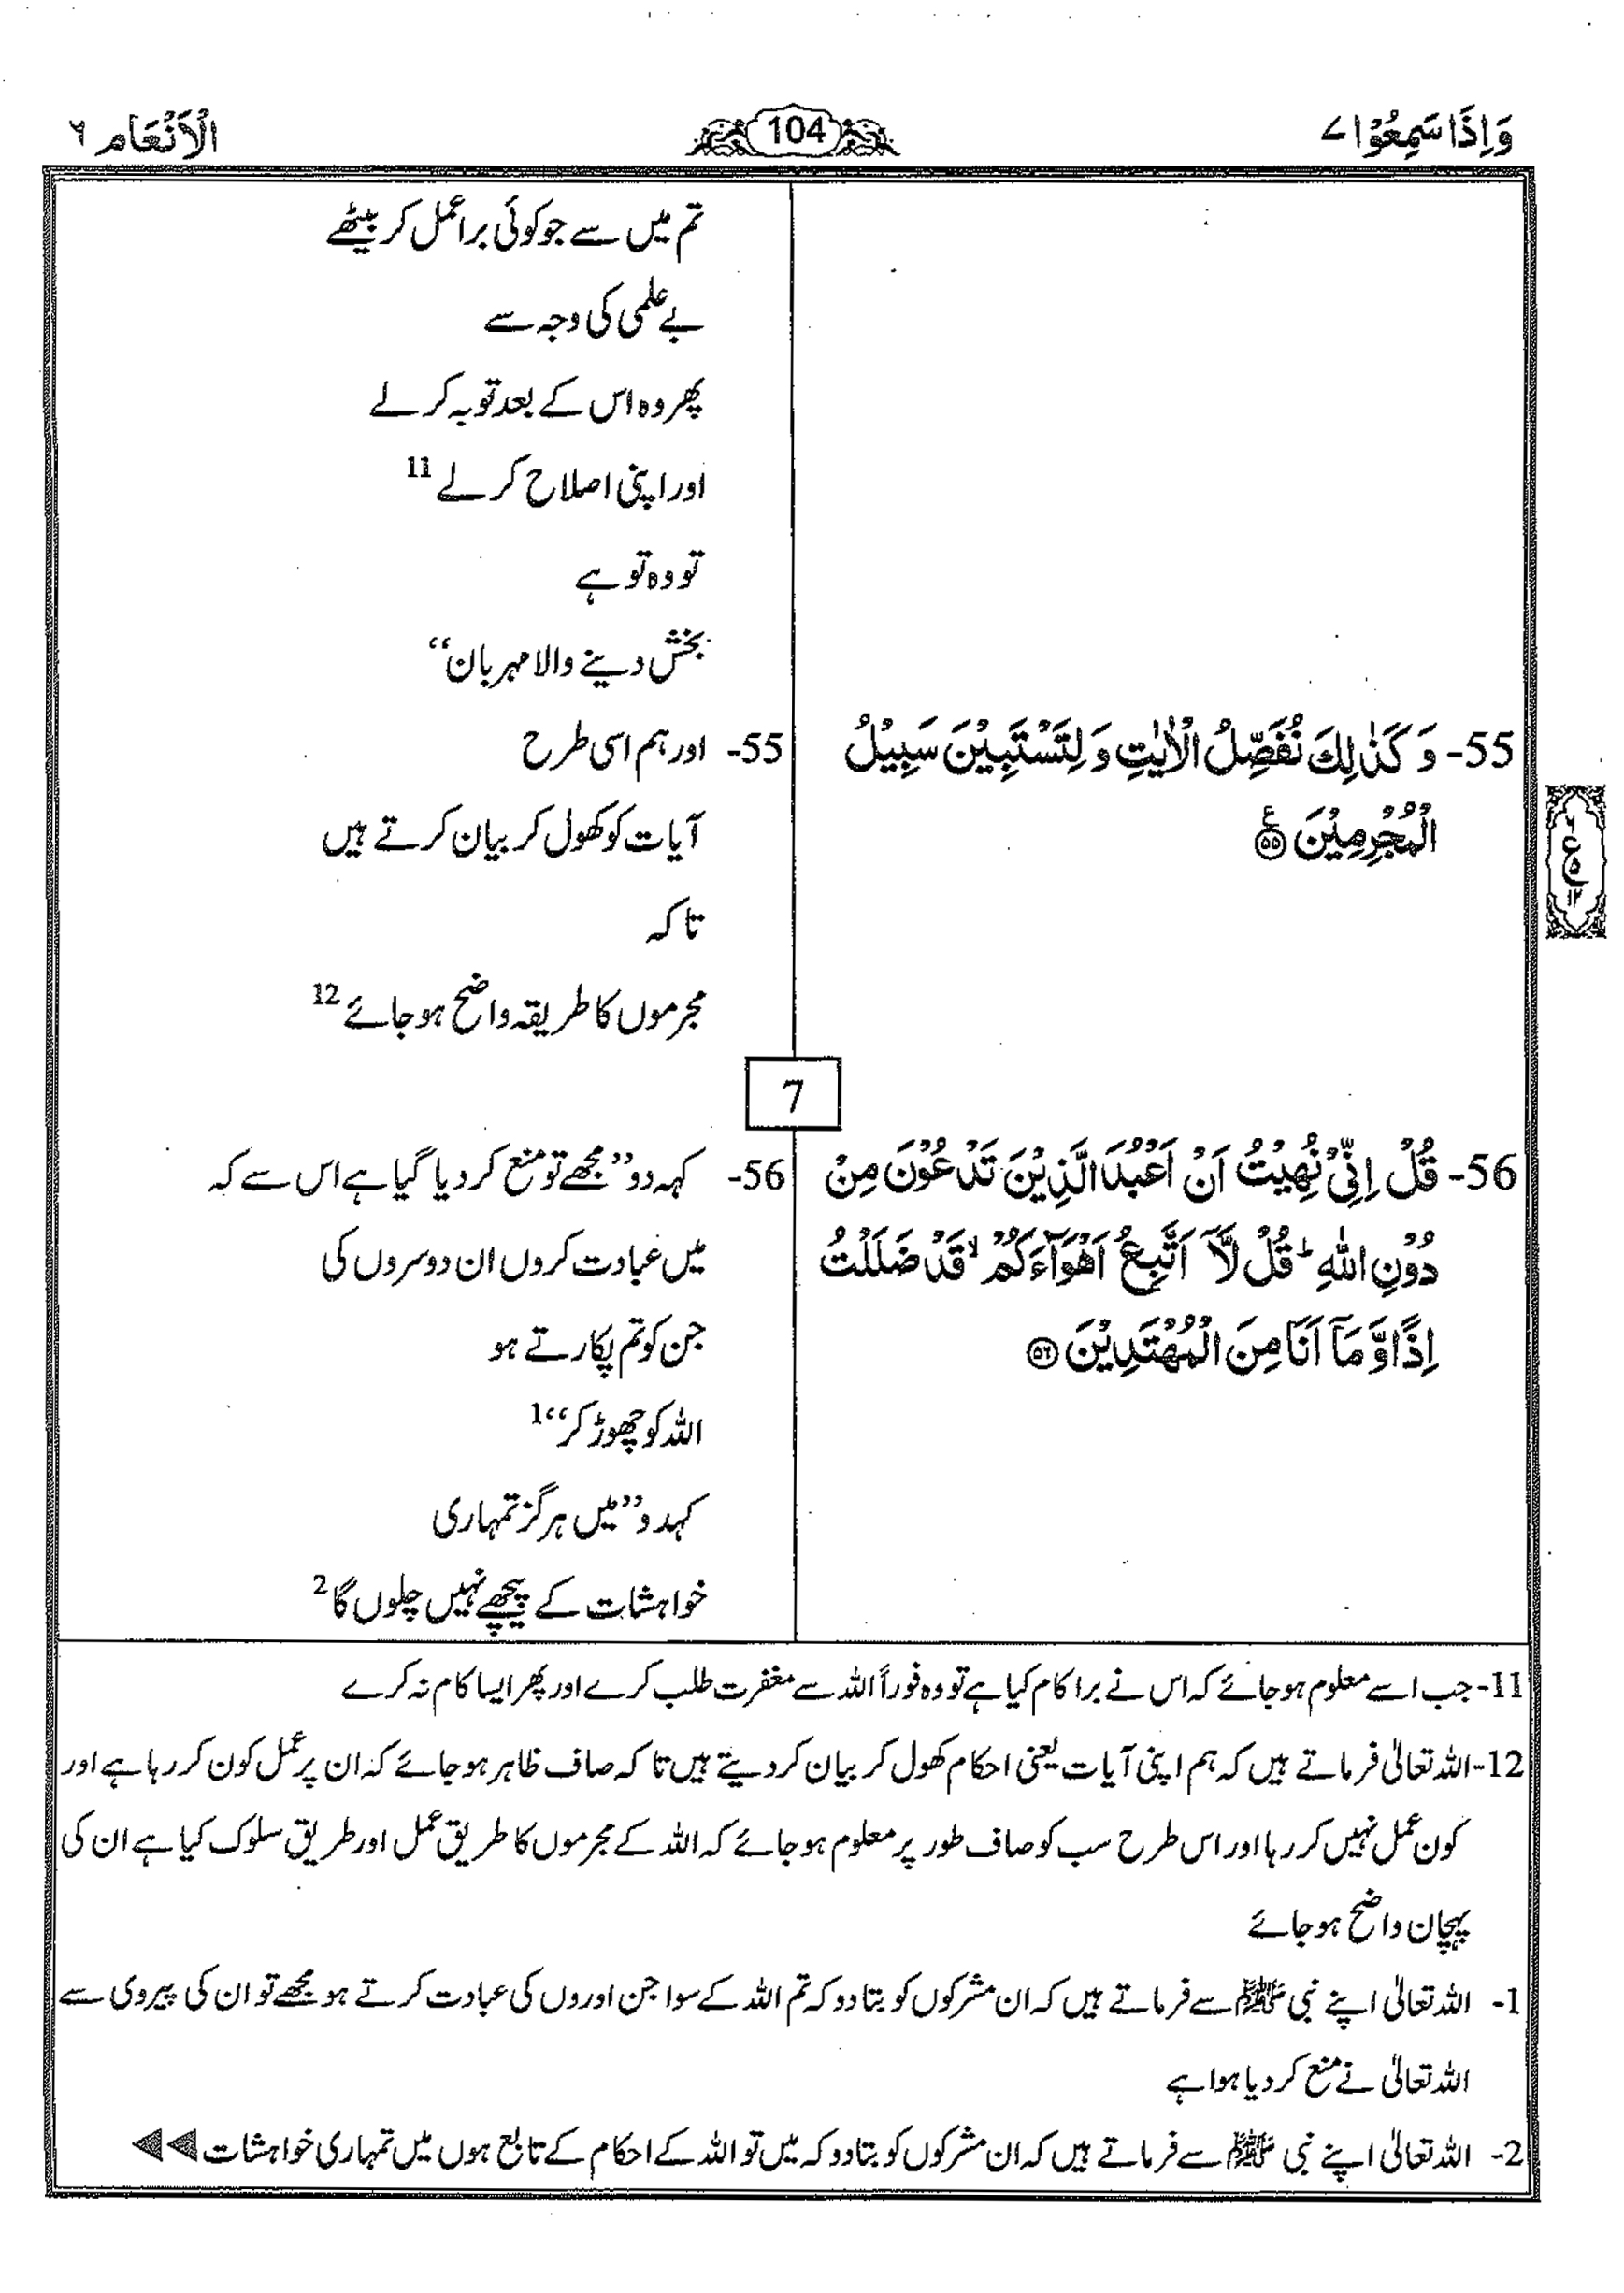 وَاِذَا سَمِعُوْا ٧
104
الْاَنْعَام ٦
تم میں سے جو کوئی برا عمل کر بیٹھے
بے علمی کی وجہ سے
پھر وہ اس کے بعد توبہ کر لے
اور اپنی اصلاح کر لے 11
تو وہ تو ہے
بخش دینے والا مہربان‘‘
55- وَ كَذٰلِكَ نُفَصِّلُ الْاٰيٰتِ وَ لِتَسْتَبِيْنَ سَبِيْلُ
الْمُجْرِمِيْنَ ۧ﴿۵۵﴾
55- اور ہم اسی طرح
آیات کو کھول کر بیان کرتے ہیں
تا کہ
مجرموں کا طریقہ واضح ہو جائے 12
7
56- قُلْ اِنِّيْ نُهِيْتُ اَنْ اَعْبُدَ الَّذِيْنَ تَدْعُوْنَ مِنْ
دُوْنِ اللّٰهِ ؕ قُلْ لَّاۤ اَتَّبِعُ اَهْوَآءَكُمْ ۙ قَدْ ضَلَلْتُ
اِذًا وَّ مَاۤ اَنَا مِنَ الْمُهْتَدِيْنَ ﴿۵۶﴾
56- کہہ دو ’’مجھے تو منع کر دیا گیا ہے اس سے کہ
میں عبادت کروں ان دوسروں کی
جن کو تم پکارتے ہو
اللہ کو چھوڑ کر‘‘ 1
کہہ دو ’’میں ہرگز تمہاری
خواہشات کے پیچھے نہیں چلوں گا 2
11- جب اسے معلوم ہو جائے کہ اس نے برا کام کیا ہے تو وہ فوراً اللہ سے مغفرت طلب کرے اور پھر ایسا کام نہ کرے
12- اللہ تعالیٰ فرماتے ہیں کہ ہم اپنی آیات یعنی احکام کھول کر بیان کر دیتے ہیں تا کہ صاف ظاہر ہو جائے کہ ان پر عمل کون کر رہا ہے اور
کون عمل نہیں کر رہا اور اس طرح سب کو صاف طور پر معلوم ہو جائے کہ اللہ کے مجرموں کا طریق عمل اور طریق سلوک کیا ہے ان کی
پہچان واضح ہو جائے
1- اللہ تعالیٰ اپنے نبی ﷺ سے فرماتے ہیں کہ ان مشرکوں کو بتا دو کہ تم اللہ کے سوا جن اوروں کی عبادت کرتے ہو مجھے تو ان کی پیروی سے
اللہ تعالیٰ نے منع کر دیا ہوا ہے
2- اللہ تعالیٰ اپنے نبی ﷺ سے فرماتے ہیں کہ ان مشرکوں کو بتا دو کہ میں تو اللہ کے احکام کے تابع ہوں میں تمہاری خواہشات